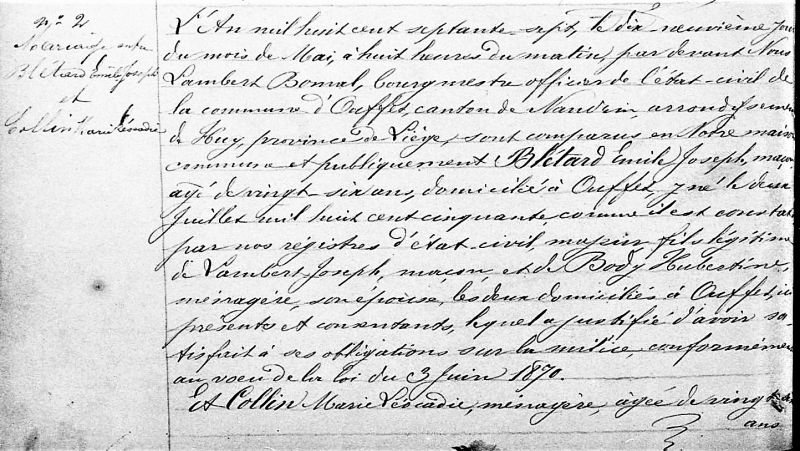 N° 2
Mariage entre
Blétard Emile Joseph
et
Collin Marie Léocadie
L'An mil huit cent septante-sept, le dix-neuvième jour
du mois de Mai, à huit heures du matin, par devant Nous
Lambert Bomal, bourgmestre officier de l'état-civil de
la commune d'Ouffet, canton de Nandrin, arrondissement
de Huy, province de Liège, sont comparus en Notre maison
commune et publiquement Blétard Emile Joseph, maçon
agé de vingt-six ans, domicilié à Ouffet, y né le deux
Juillet mil huit cent cinquante comme il est constaté
par nos régistres d'état-civil, majeur fils légitime
de Lambert Joseph, maçon et de Body Hubertine,
ménagère, son épouse, les deux domiciliés à Ouffet, ici
présents et consentants, lequel a justifié d'avoir sa-
tisfait à ses obligations sur la milice conformément
au voeu de la loi du 3 Juin 1870.
Et Collin Marie Léocadie, ménagère, agée de vingt
ans